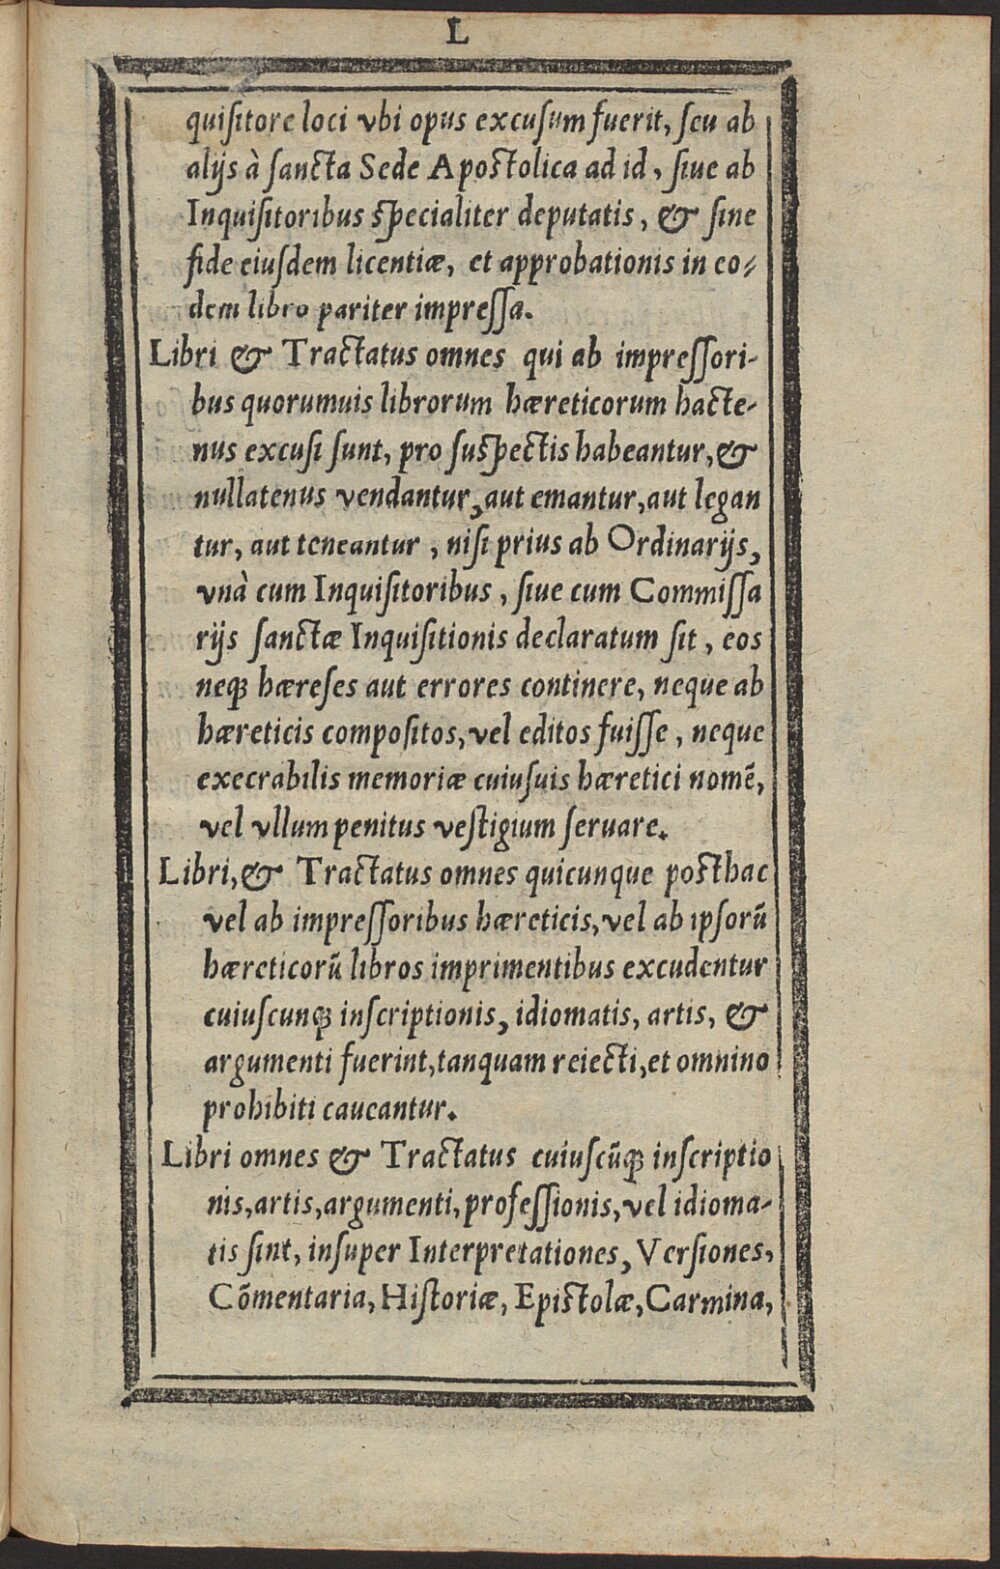 L
quiſitore loci vbi opus excuſum fuerit, ſeu ab
alijs à ſancta Sede Apostolica ad id, ſiue ab
Inquiſitoribus specialiter deputatis, & ſine
fide eiuſdem licentiæ, et approbationis in eo-
dem libro pariter impreſſa.
Libri & Tractatus omnes qui ab impreſſori-
bus quorumuis librorum hæreticorum hacte-
nus excuſi ſunt, pro ſuspectis habeantur, &
nullatenus vendantur, aut emantur, aut legan
tur, aut teneantur, niſi prius ab Ordinarijs,
vnà cum Inquiſitoribus, ſiue cum Commiſſa
rijs ſanctæ Inquiſitionis declaratum ſit, eos
neqꝫ hæreſes aut errores continere, neque ab
hæreticis compoſitos, vel editos fuiſſe, neque
execrabilis memoriæ cuiuſuis hæretici nomē,
vel vllum penitus veſtigium ſeruare.
Libri, & Tractatus omnes quicunque posthac
vel ab impreſſoribus hæreticis, vel ab ipſorū
hæreticorū libros imprimentibus excudentur
cuiuſcunqꝫ inſcriptionis, idiomatis, artis, &
argumenti fuerint, tanquam reiecti, et omnino
prohibiti caueantur.
Libri omnes & Tractatus cuiuſcūqꝫ inſcriptio
nis, artis, argumenti, profeſſionis, vel idioma-
tis ſint, inſuper Interpretationes, Verſiones,
Cōmentaria, Hiſtoriæ, Epistolæ, Carmina,